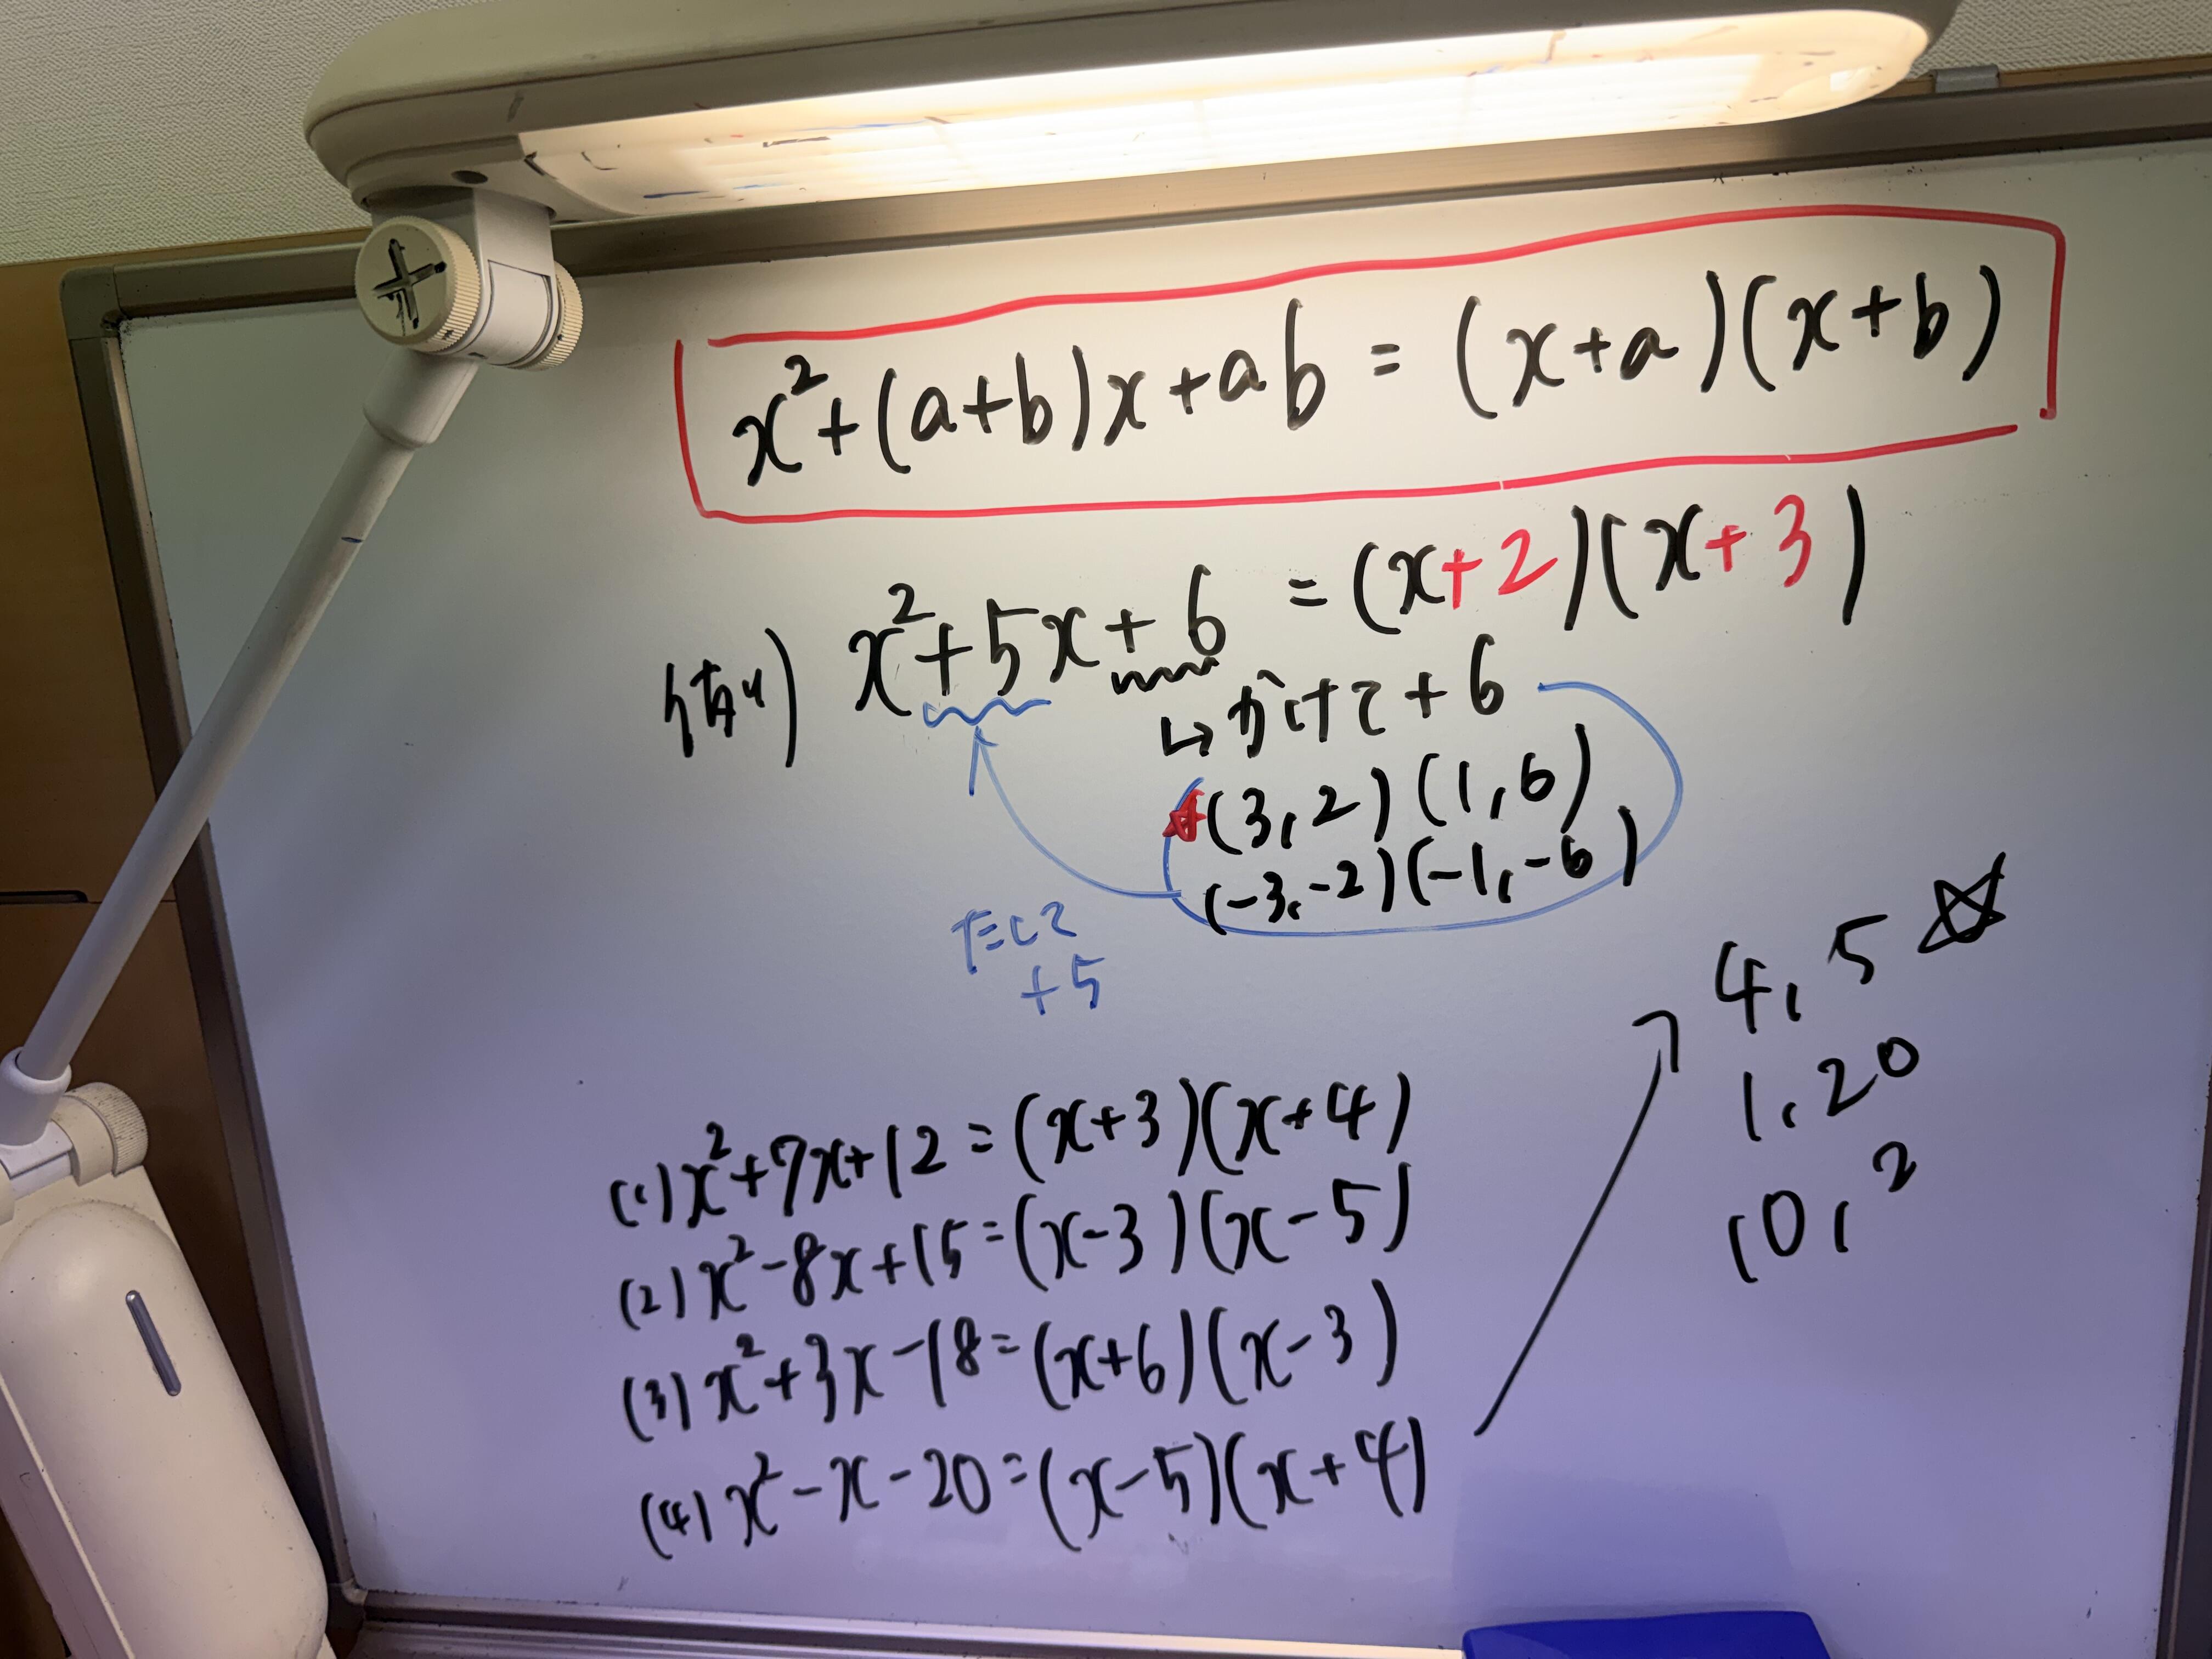 x²+(a+b)x+ab = (x+a)(x+b)
例) x²+5x+6 = (x+2)(x+3)
↳ かけて+6
(3,2)(1,6)
(-3,-2)(-1,-6)
たして
+5
(1) x²+7x+12=(x+3)(x+4)
(2) x²-8x+15=(x-3)(x-5)
(3) x²+3x-18=(x+6)(x-3)
(4) x²-x-20=(x-5)(x+4)
4,5☆
1,20
10,2